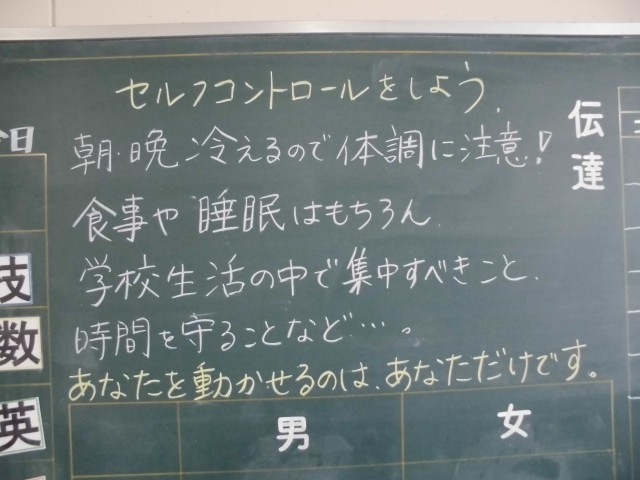 セルフコントロールをしよう.
朝・晩冷えるので体調に注意!
食事や睡眠はもちろん.
学校生活の中で集中すべきこと.
時間を守ることなど…。
あなたを動かせるのは、あなただけです。
伝達
今日
技
数
英
男
女